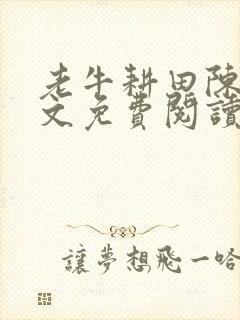 老牛耕田陳
文免費閱讀
讓夢想飛一哈